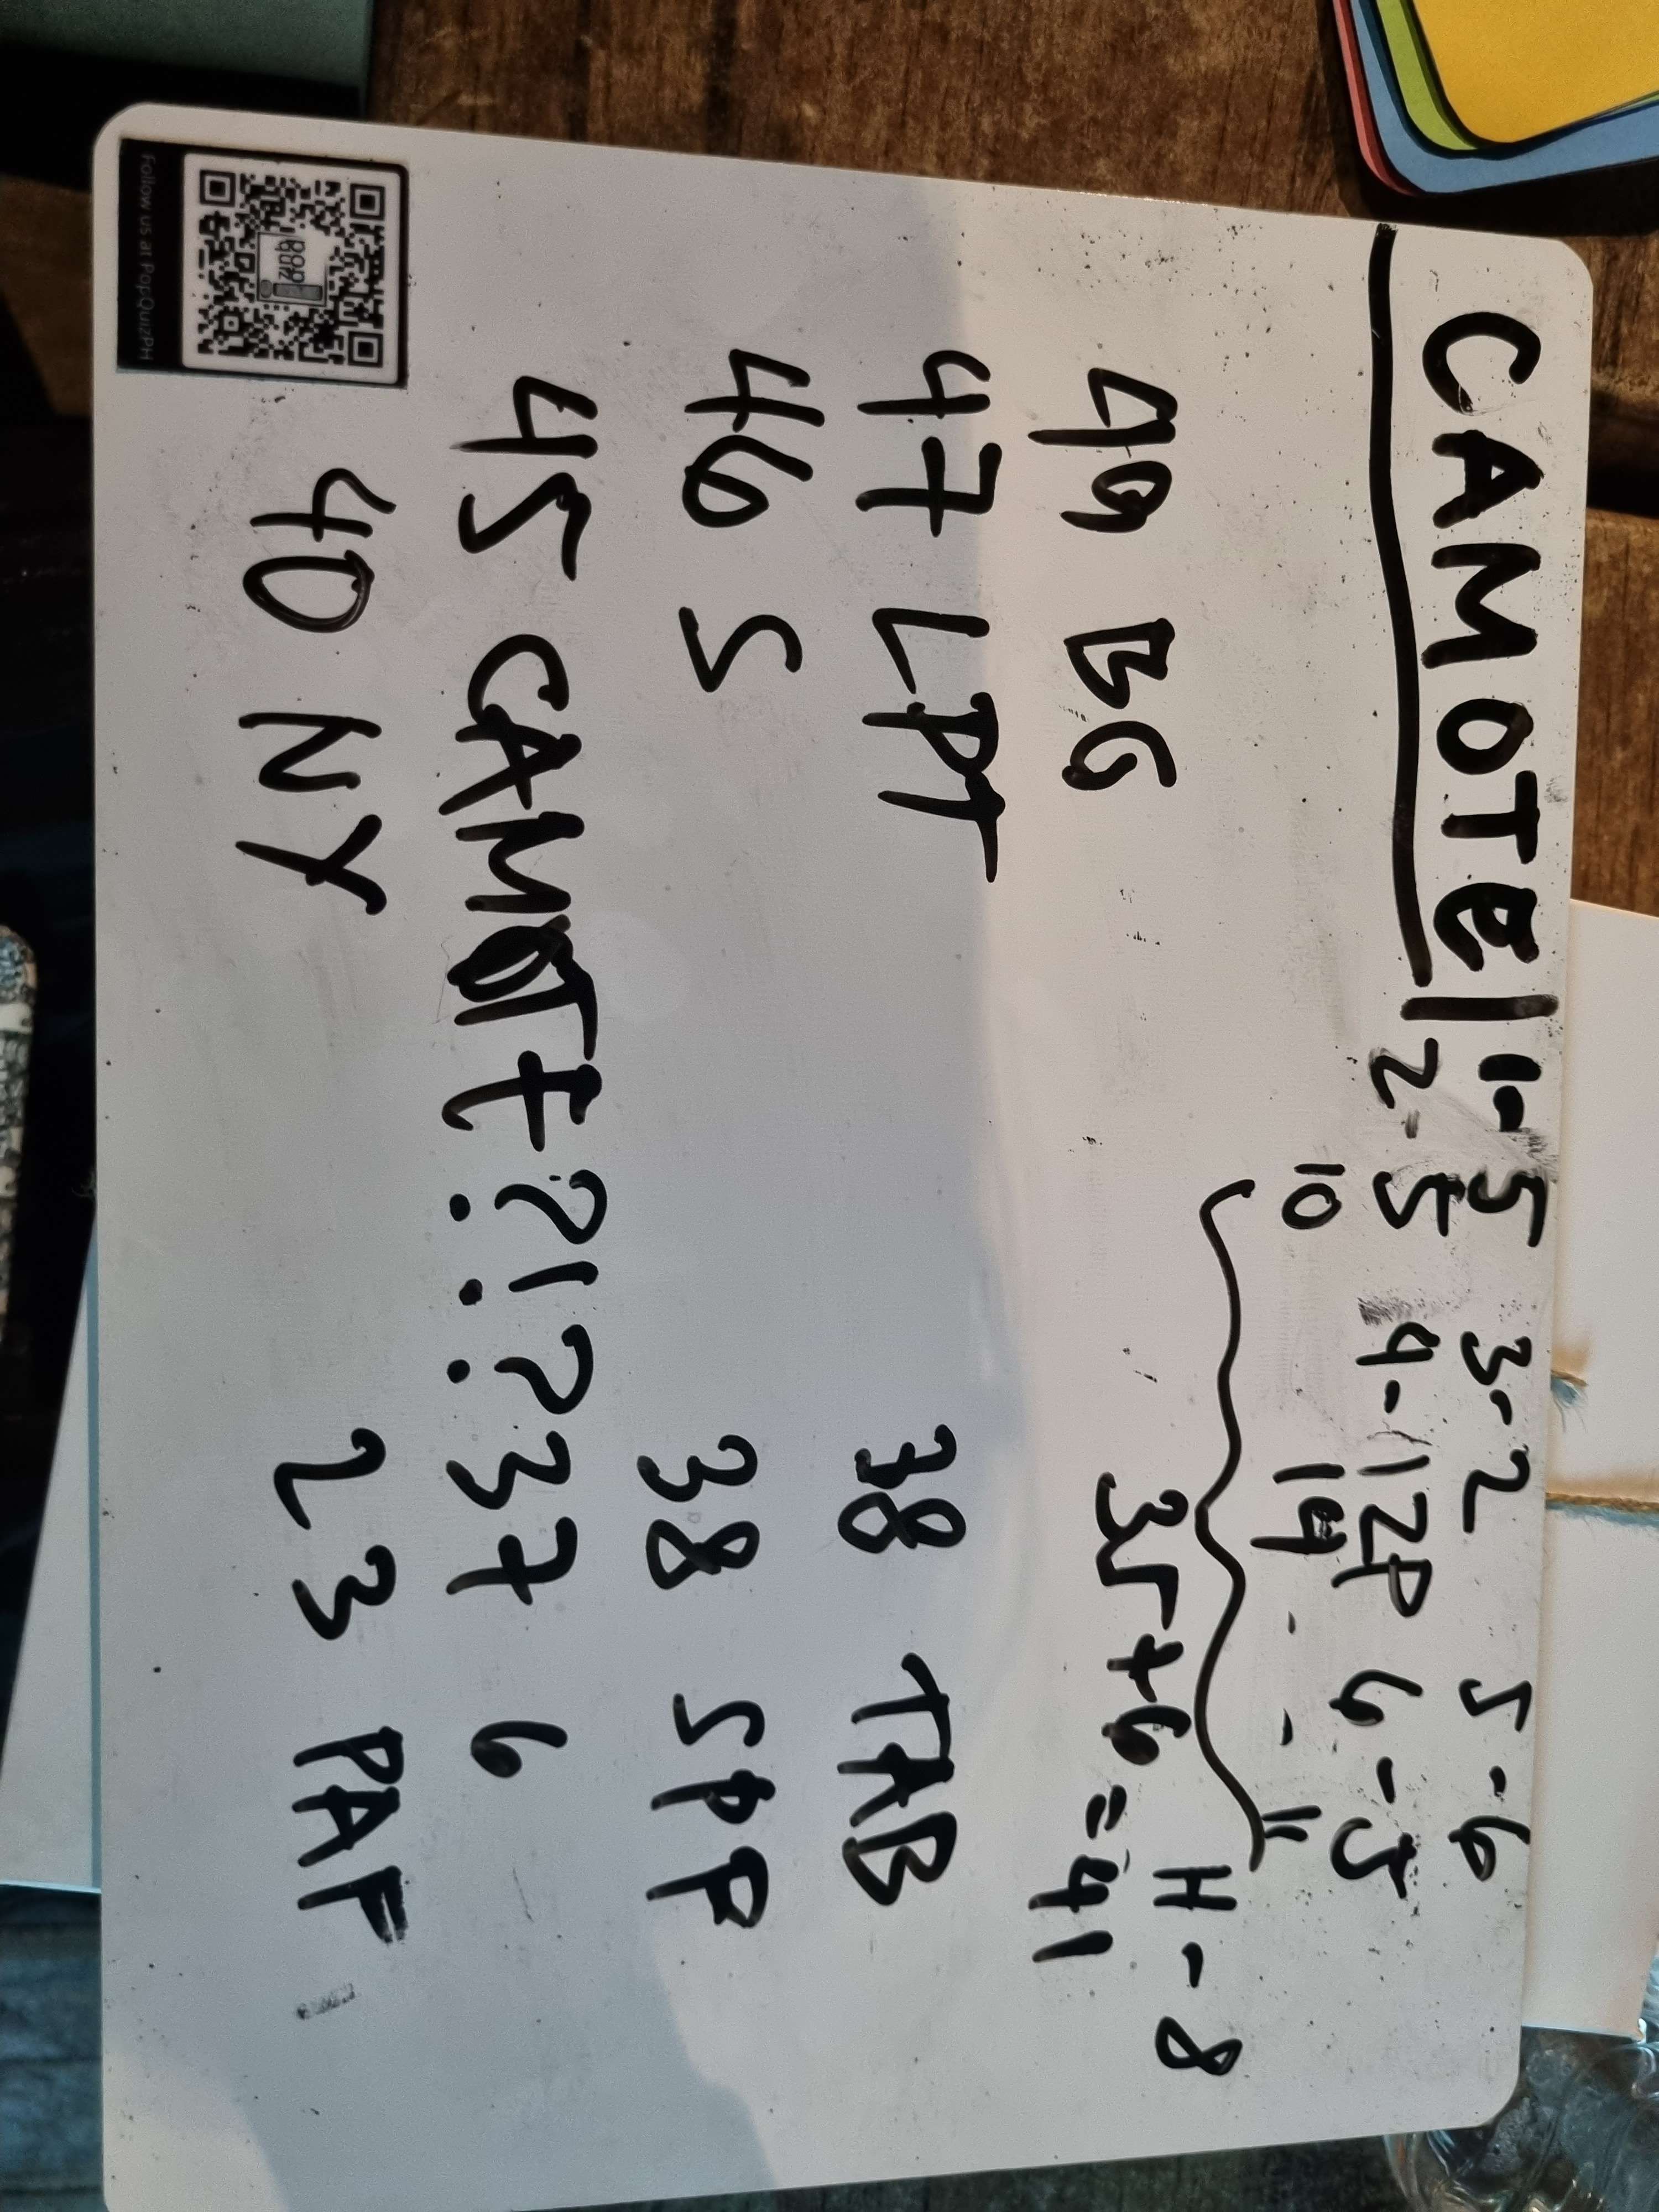 CAMOTE 1-5 3-2 5-6
2-5 4-12P 6-5
10 14 - - 11
H-8
35+6=41
49 BG
47 LPT
46 S
45 CAMOTE?!?
40 NY
38 TAB
38 SPF
37 6
23 PAF
pop quiz!
Follow us at PopQuizPH